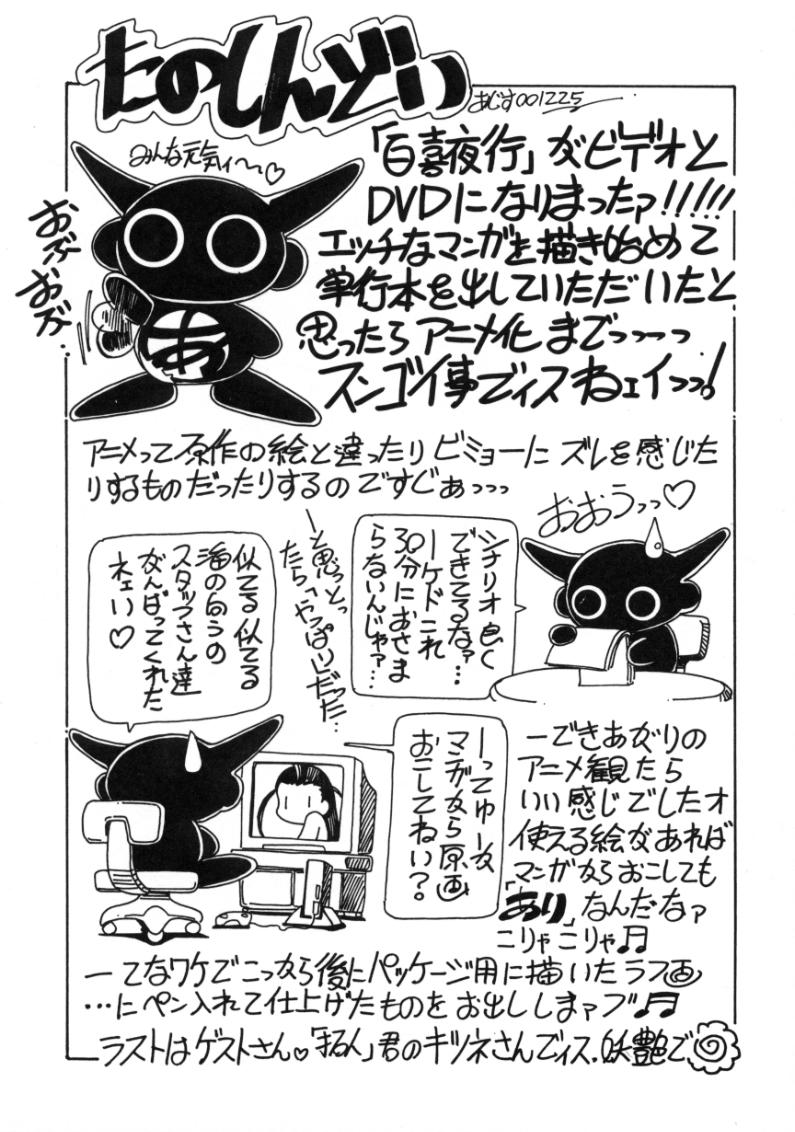 たのしんどい
あじす001225
みんな元気ィ～♡
おぶおぶ..
あ
「百喜夜行」がビデオと
DVDになりまったァ!!!!!
エッチなマンガを描き始めて
単行本を出していただいたと
思ったらアニメ化までっーっ
スンゴイ事でィスねェイっっ!
アニメって原作の絵と違ったりビミョーにズレを感じた
りするものだったりするのですじぁっっっ
おおうっっ♡
シナリオ良く
できてるなァ…
ーケドこれ
30分におさま
らないんじゃァ…
ーと思っとっ
たら「やっぱり」だった…
似てる似てる
海の向うの
スタッフさん達
がんばってくれた
ネェい♡
ーってゆーか
マンガから原画
おこしてねい?。
ーできあがりの
アニメ観たら
いい感じでしたオ
使える絵があれば
マンガからおこしても
「あり」なんだなァ
こりゃこりゃ♬
ーてなワケでこっから後にパッケージ用に描いたラフ画
…にペン入れて仕上げたものをお出ししまァブ♬
ラストはゲストさん♡「まる人」君のキツネさんでィス.妖艶で